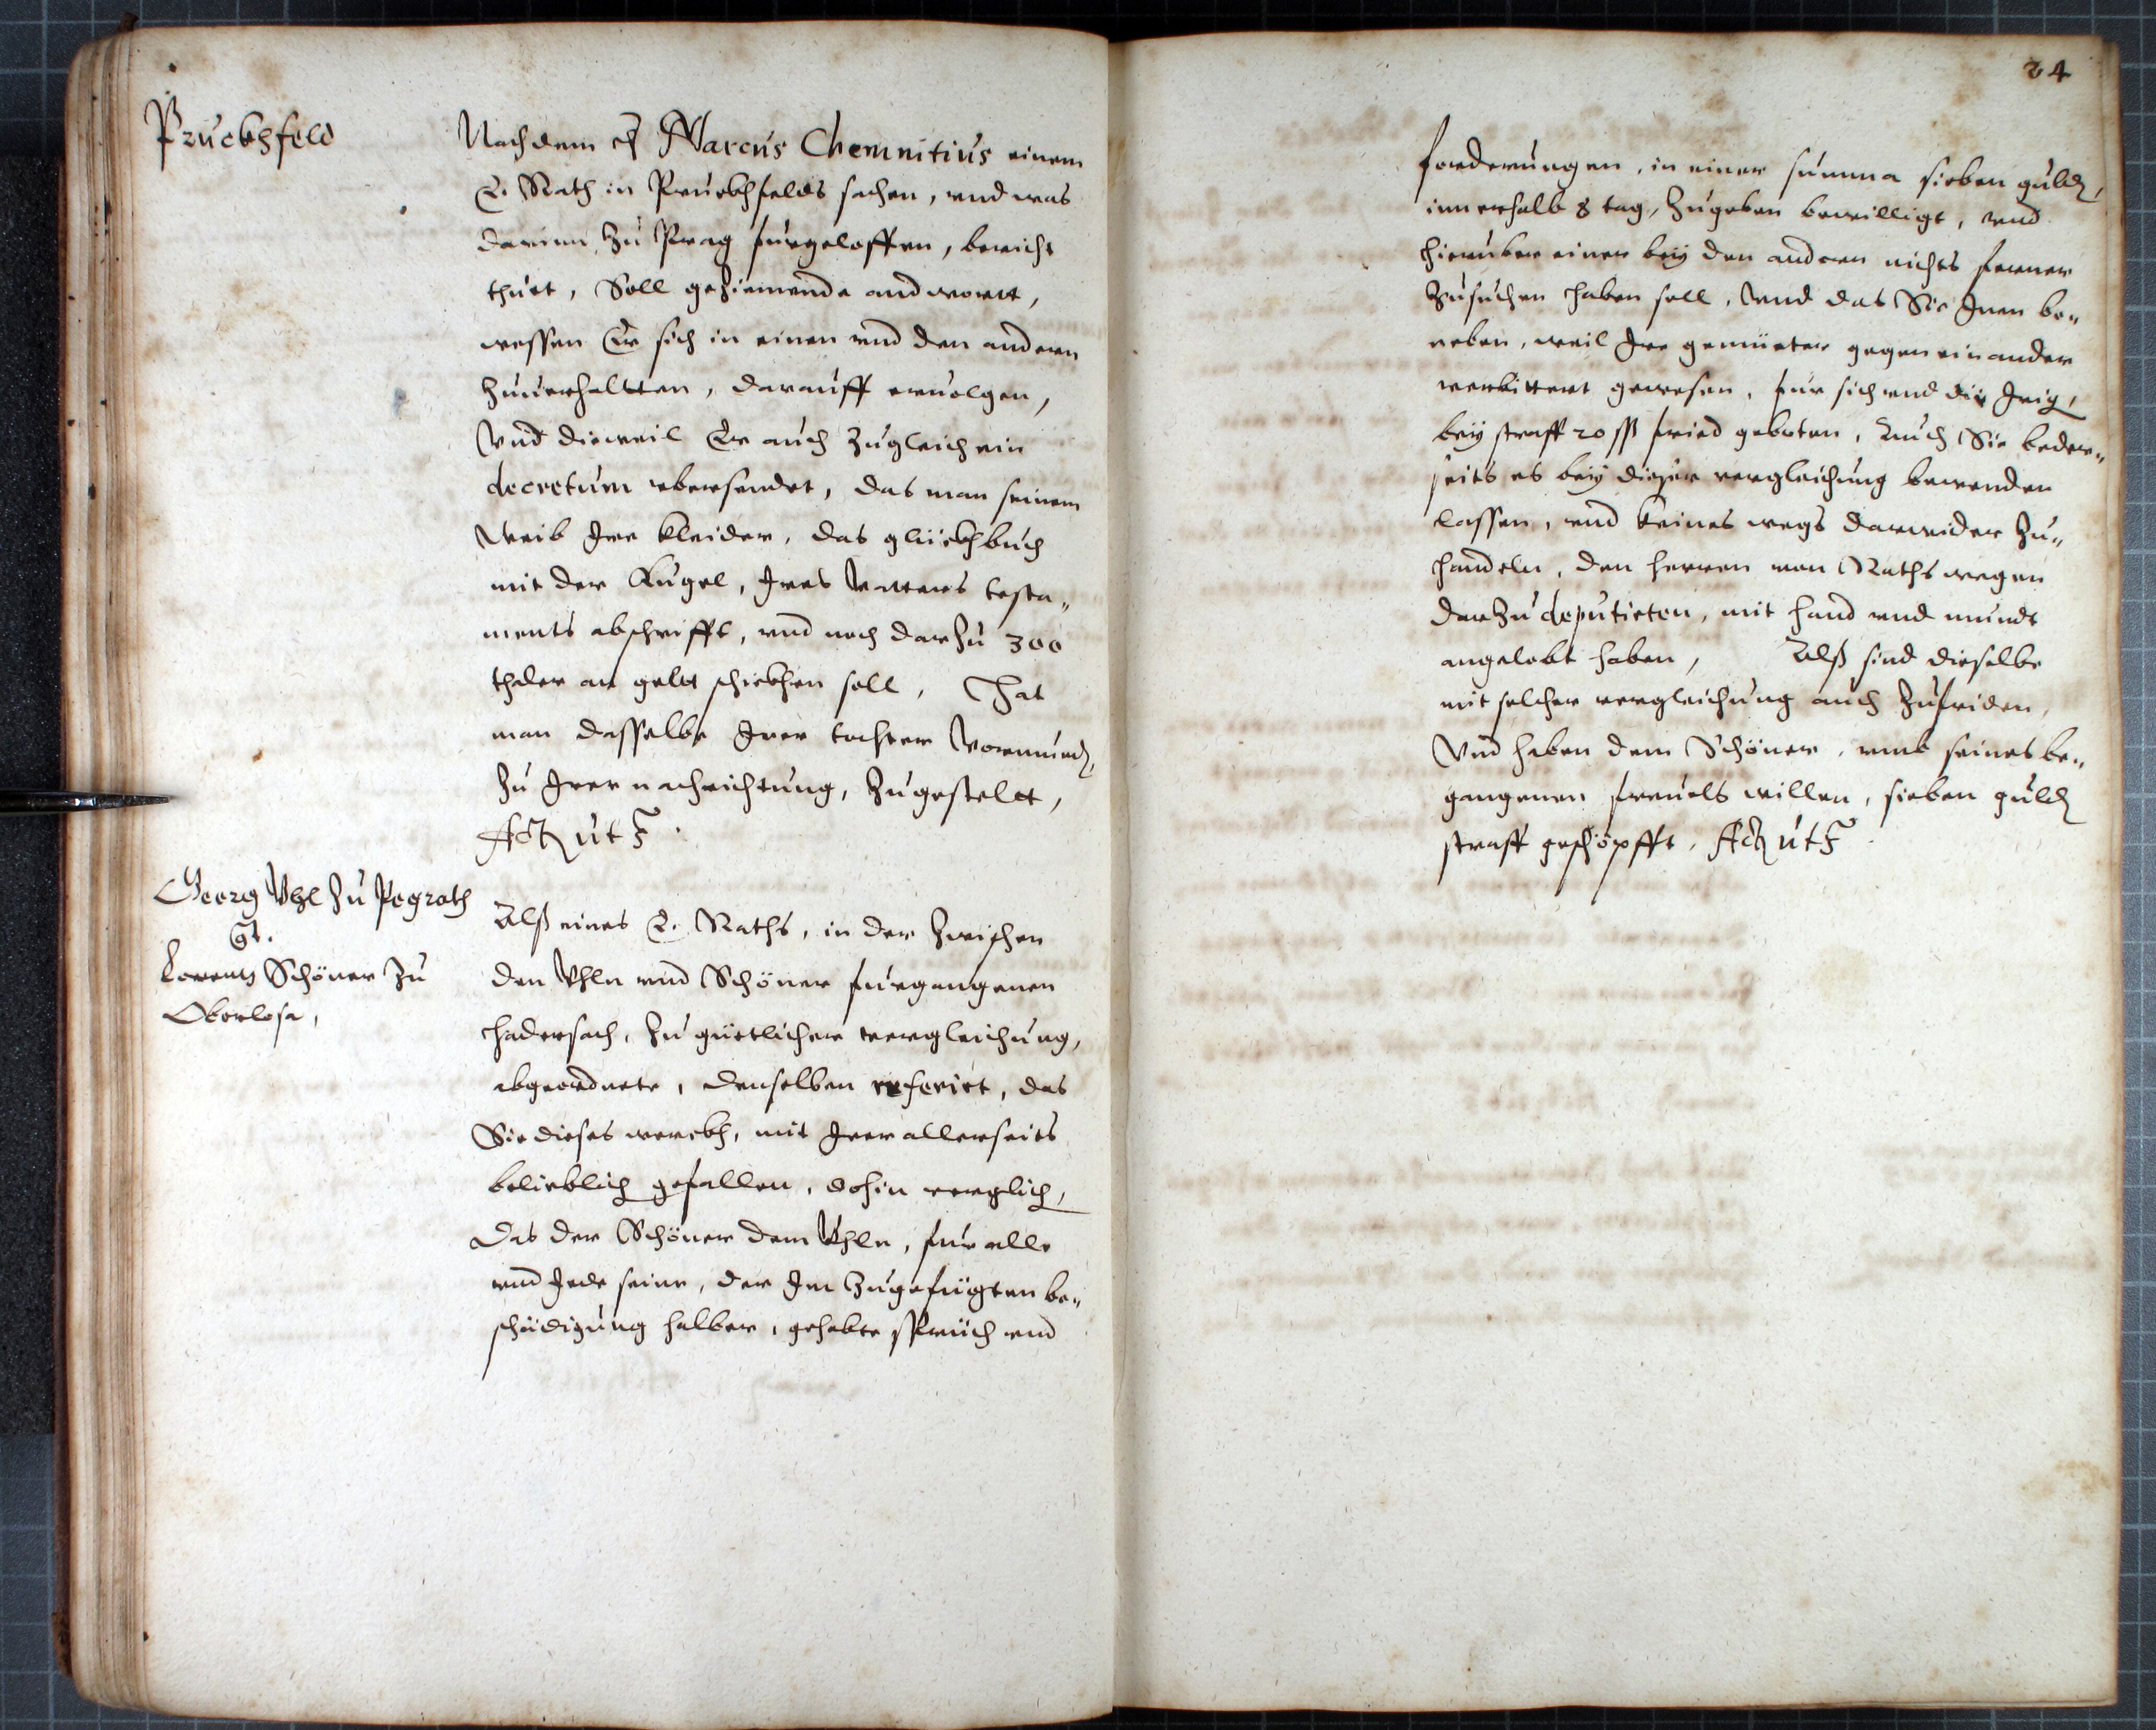 Pruckhsfeld
Nachdem H Marcus Chemnitius einem
E. Rath in Pruckhsfelds sachen, vnd was
darinn zu Prag furgeloffen, bericht
thuet, Soll geziemende andtwortt,
wessen Er sich in einen vnd den andern
zuuerhaltten, darauff eruolgen,
Vnd dieweil Er auch zugleich ein
decretum vbersendet, das man seinem
Weib Ire kleider, das glückhbuch
mit der Kugel, Ires Vatters testa„
ments abschrifft, vnd noch darzu 300
thaler an geltt schickhen soll, Hat
man dasselbe Irer tochter Vormund,
zu Irer nachrichtung, zugestelltt,
Act ut s.
Georg Vhl zu Pograth
Ct.
Lorentz Schöner zu
Oberlosa,
Alß eines E. Raths, in der zwischen
den Vhln vnd Schöner furgangenen
hadersach, zu güetlicher vergleichung,
abgeordnete, denselben referirt, das
Sie dieses werckh, mit Irer allerseits
belieblich gefallen, dohin verglich,
Das der Schöner dem Vhln, fur alle
vnd Jede seine, der Im zugefügten be„
schädigung halber, gehabte sprüch vnd
24
forderungen, in einer summa sieben guld,
innerhalb 8 tag, zugeben bewilligt, vnd
hieruber einer bey den andern nichts ferner
zusuchen haben soll, Vnd das Sie Inen be„
neben, weil Ire gemüeter gegen einander
verbittert gewesen, fur sich vnd die Irig,
bey straff 20 ß fried geboten, Auch Sie beder„
seits es bey dieser vergleichung bewenden
lassen, vnd keines wegs darwider zu„
handeln, den herren von Raths wegen
darzu deputirten, mit hand vnd mundt
angelobt haben, Alß sind dieselbe
mit solcher vergleichung auch zufriden,
Vnd haben dem Schöner, vmb seines be„
gangenen freuels willen, sieben guld
straff geschöpfft, Act ut s